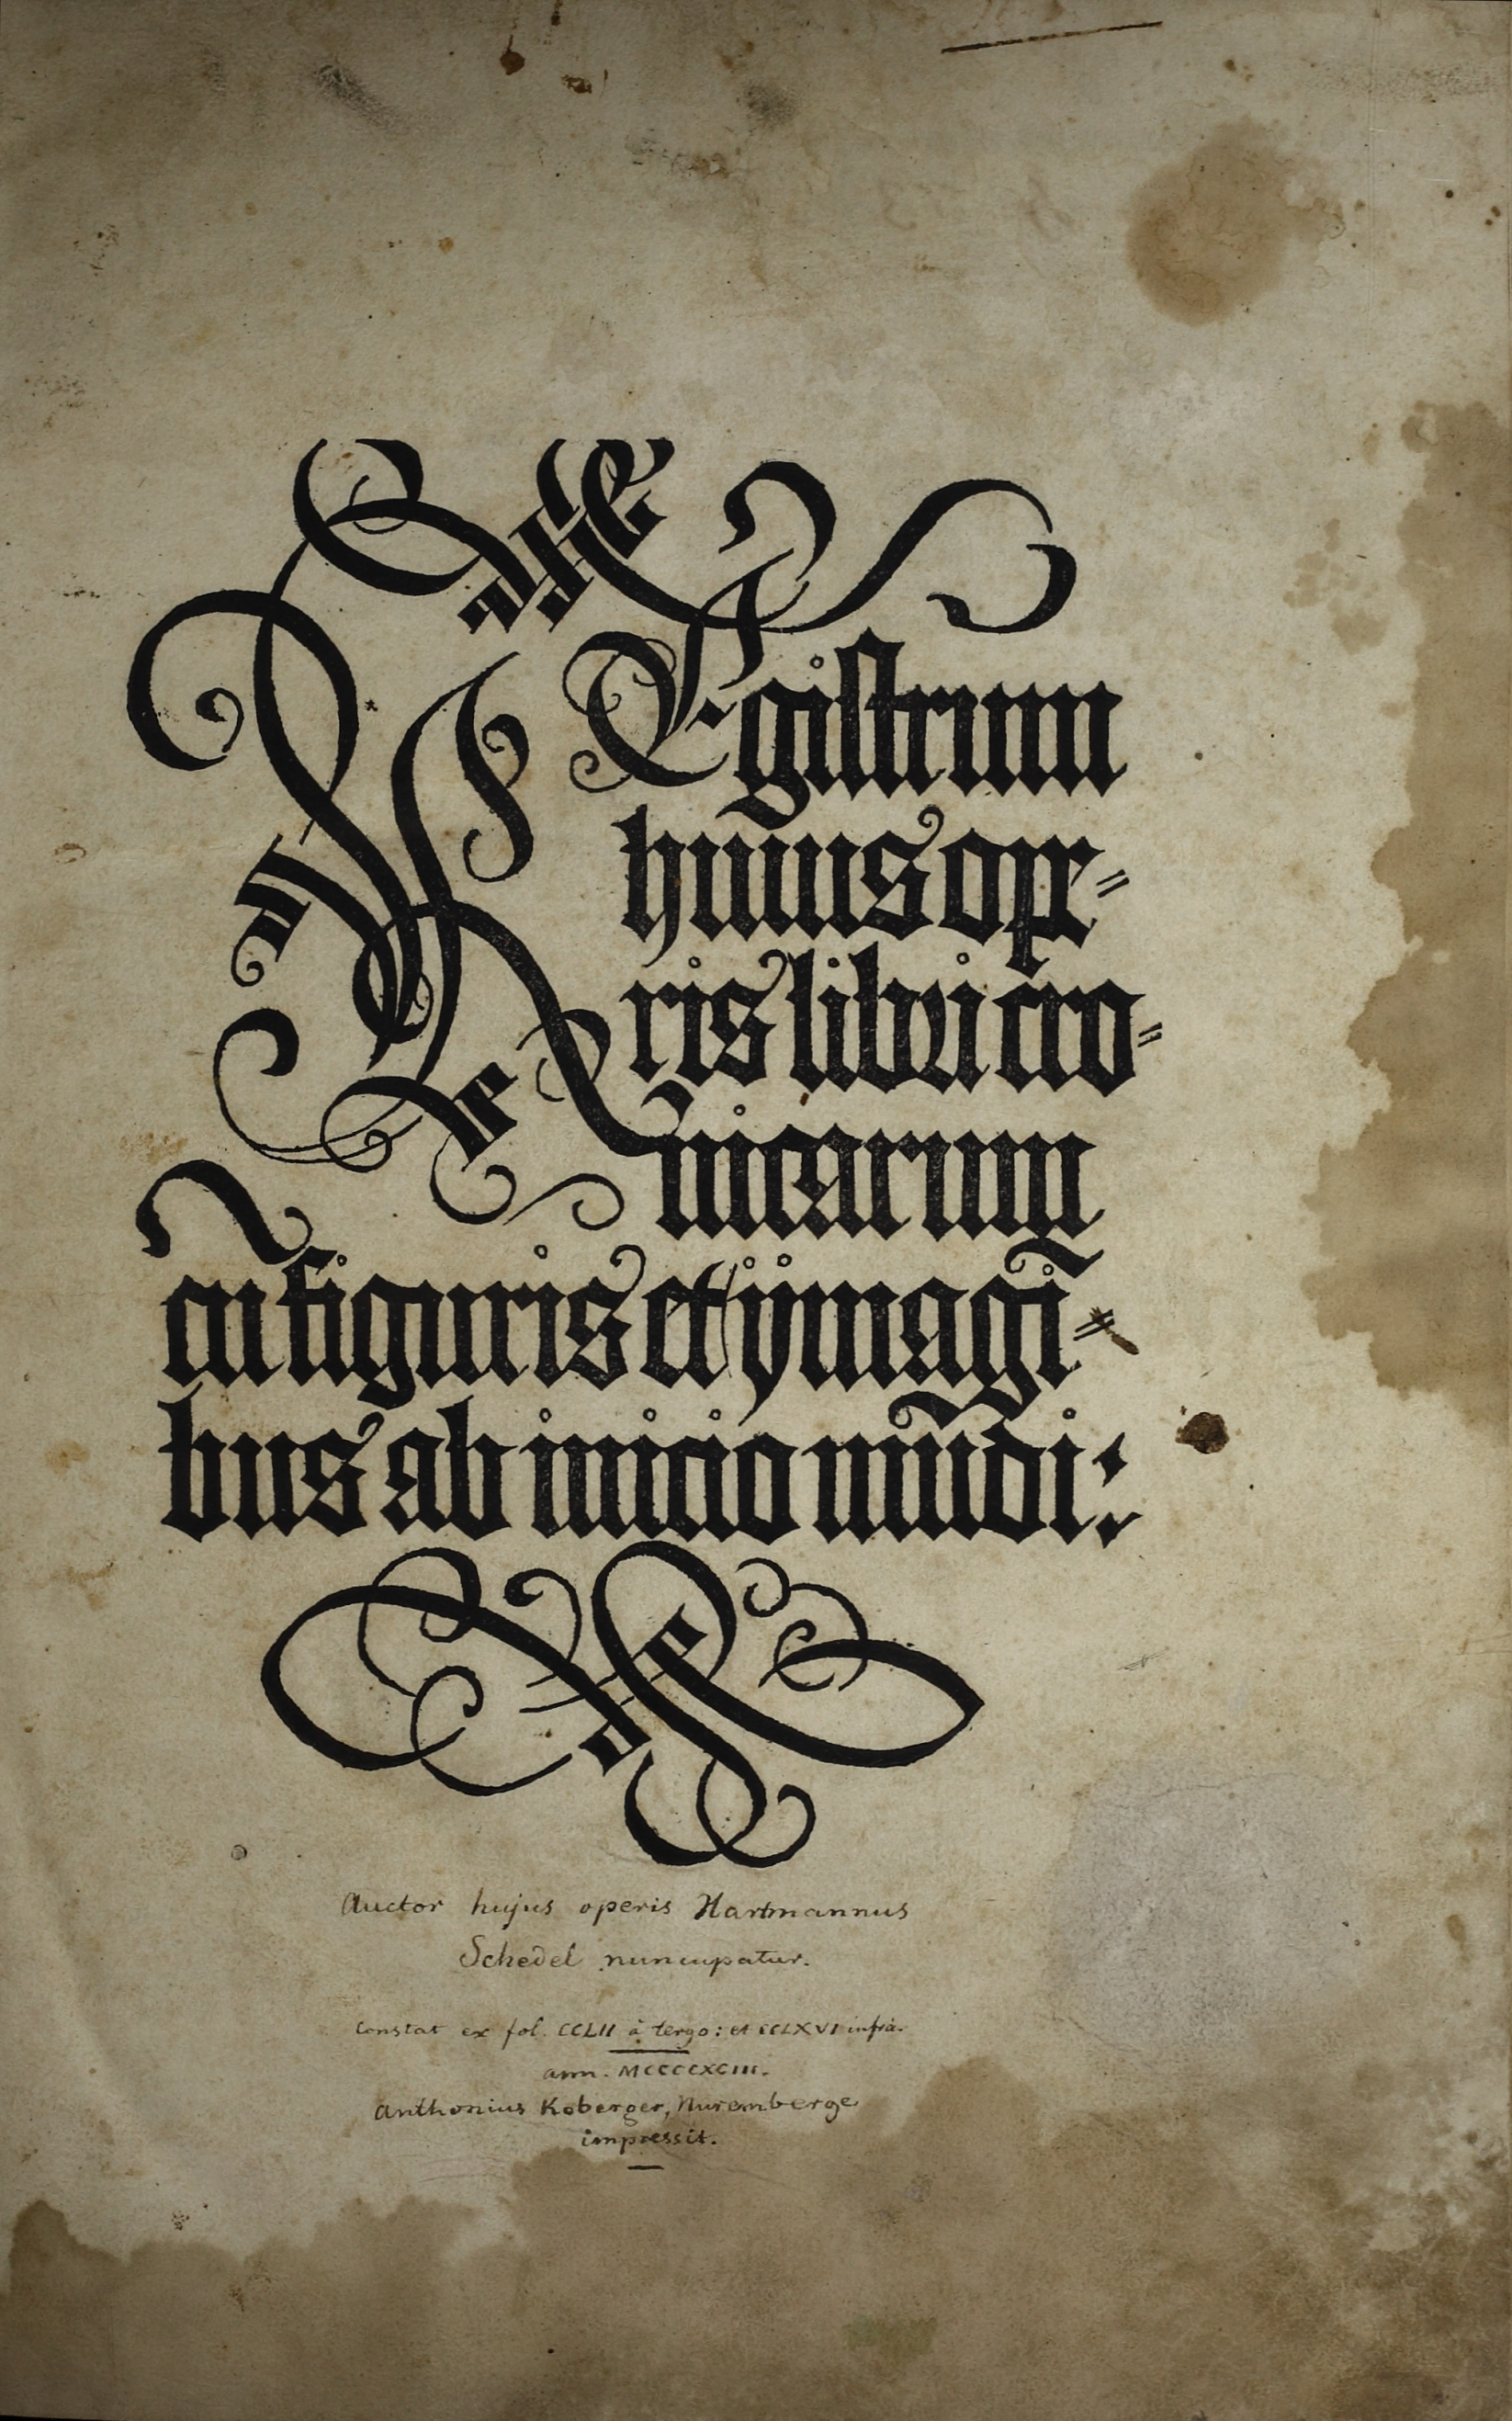 REgistrum
huius ope=
ris libri cro=
nicarum
cū figuris et ymagī=
bus ab inicio mūdi:
Auctor hujus operis Hartmannus
Schedel nuncupatur.
Constat ex fol. CCLII à tergo: et CCLXVI infrà.
ann. MCCCCXCIII.
Anthonius Koberger, Nuremberge
impressit.